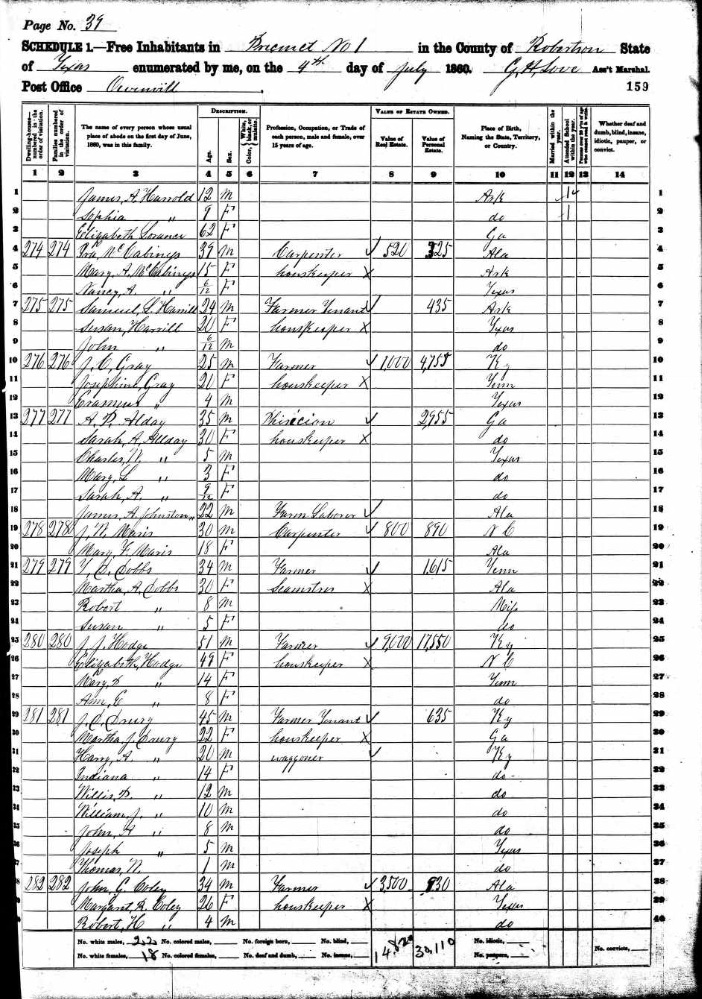 Page No. 39
SCHEDULE 1.—Free Inhabitants in Precinct No 1 in the County of Robertson State
of Texas enumerated by me, on the 4th day of July 1860. G H Love Ass't Marshal.
Post Office Owenvill
159
Dwelling-houses—numbered in the order of visitation.
Families numbered in the order of visitation.
The name of every person whose usual place of abode on the first day of June, 1860, was in this family.
DESCRIPTION.
Age.
Sex.
Color, White, black, or mulatto.
Profession, Occupation, or Trade of each person, male and female, over 15 years of age.
VALUE OF ESTATE OWNED.
Value of Real Estate.
Value of Personal Estate.
Place of Birth, Naming the State, Territory, or Country.
Married within the year.
Attended School within the year.
Whether deaf and dumb, blind, insane, idiotic, pauper, or convict.
1 2 3 4 5 6 7 8 9 10 11 12 13 14
1 James A. Harrold 12 m Ark 1
2 Sophia " 9 F do 1 2
3 Elizabeth 62 F Ga 3
4 274 274 Ira McCabinys 39 m Carpenter 520 325 Ala 4
5 Mary A. McCabinys 15 F houskeeper X Ark 5
6 Nancy A. " 6/12 F Texas 6
7 275 275 Samuel L. Harrill 24 m Farmer Tenant 435 Ark 7
8 Susan Harrill 20 F houskeeper X Texas 8
9 John " 6/12 m do 9
10 276 276 J. C. Gray 25 m Farmer 1,000 4,755 Ky 10
11 Josephine Gray 20 F houskeeper X Tenn 11
12 Erasmus " 4 m Texas 12
13 277 277 A. P. Alday 35 m Phisicion 2,955 Ga 13
14 Sarah A. Allday 30 F houskeeper X do 14
15 Charles N. " 5 m Texas 15
16 Mary L " 3 F do 16
17 Sarah A. " 9/12 F do 17
18 James A. Johnston 22 m Farm Laborer Ala 18
19 278 278 J. N. Maris 30 m Carpenter 800 890 N C 19
20 Mary F. Maris 18 F Ala 20
21 279 279 Y. C. Cobbs 34 m Farmer 1,615 Tenn 21
22 Martha A. Cobbs 30 F Seamstres X Ala 22
23 Robert " 8 m Miss 23
24 Susan " 5 F do 24
25 280 280 J. J. Hodge 51 m Farmer 9,000 17,550 Ky 25
26 Elizabeth Hodge 49 F houskeeper X N C 26
27 Mary " 14 F Tenn 27
28 Ann E " 8 F do 28
29 281 281 J. C. Drury 45 m Farmer Tenant 635 Ky 29
30 Martha J. Drury 22 F houskeeper X Ga 30
31 Harry A. " 20 m waggoner Ky 31
32 Indiana " 14 F do 32
33 Willis P. " 12 m do 33
34 William J. " 10 m do 34
35 John H " 8 m do 35
36 Joseph " 5 m Texas 36
37 Thomas N. 1 m do 37
38 282 282 John G Coley 34 m Farmer 3,500 930 Ala 38
39 Margaret R. Coley 26 F houskeeper X Texas 39
40 Robert H " 4 m do 40
No. white males, 22 No. colored males, No. foreign born, No. blind, 14,820 30,110 No. idiotic,
No. white females, 18 No. colored females, No. deaf and dumb, No. insane, No. paupers, No. convicts,